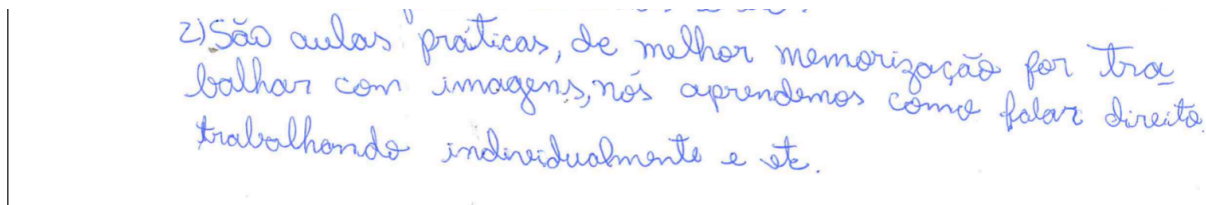 2) São aulas práticas, de melhor memorização por tra
balhar com imagens, nós aprendemos como falar direito
trabalhando individualmente e etc.